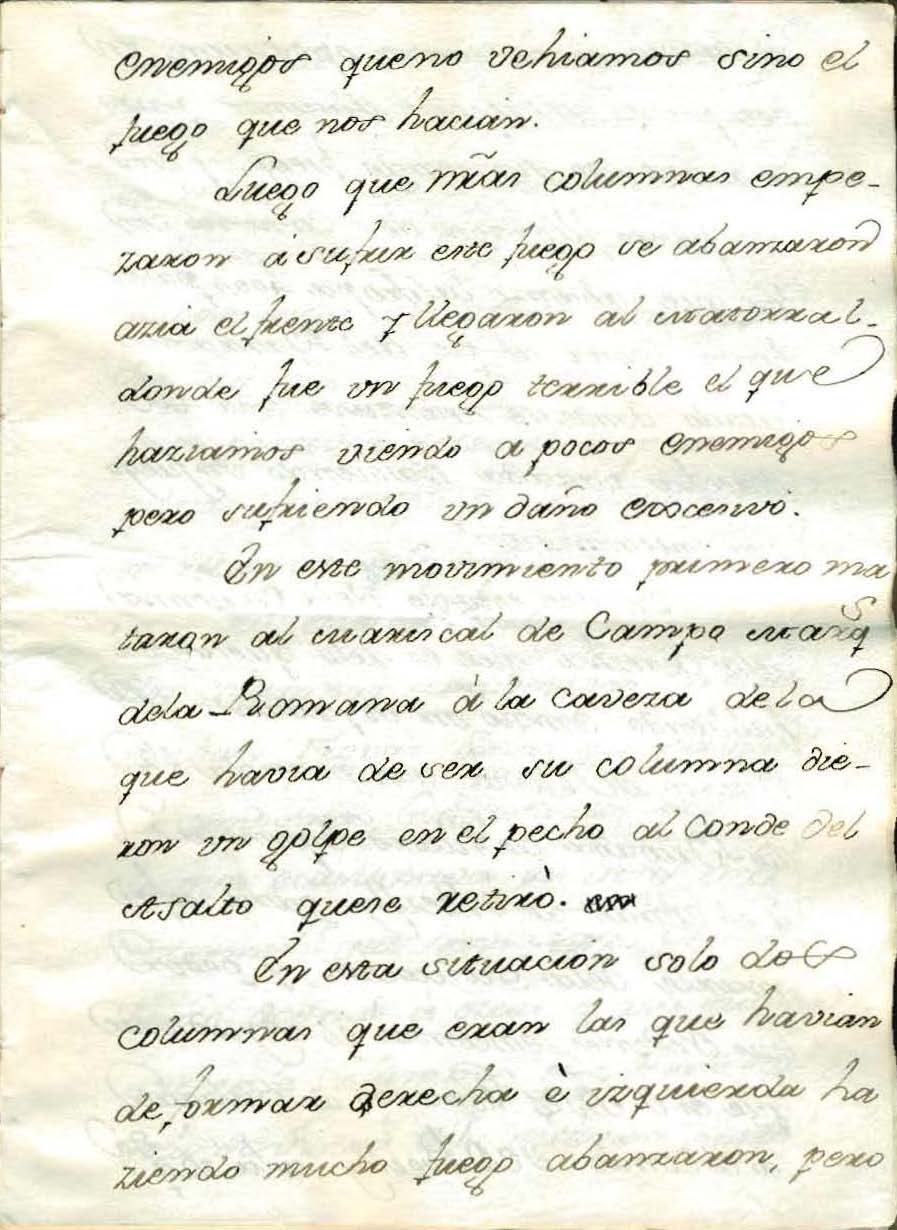 enemigos queno vehiamos sino el
fuego que nos hacian.
Luego que nr̃as columnas empe-
zaron á sufrir este fuego se abanzaron
azia el frente y llegaron al Matorral-
donde fue un fuego terrible el que
haziamos viendo a pocos enemigos
pero sufriendo un daño excecivo.
En este movimiento primero ma
taron al Mariscal de Campo Marq̃s
dela Romana à la caveza dela
que havia de ser su columna die-
ron un golpe en el pecho al Conde del
Asalto quese retirò.
En esta situacion solo dos
columnas que eran las que havian
de formar derecha è izquierda ha
ziendo mucho fuego abanzaron, pero